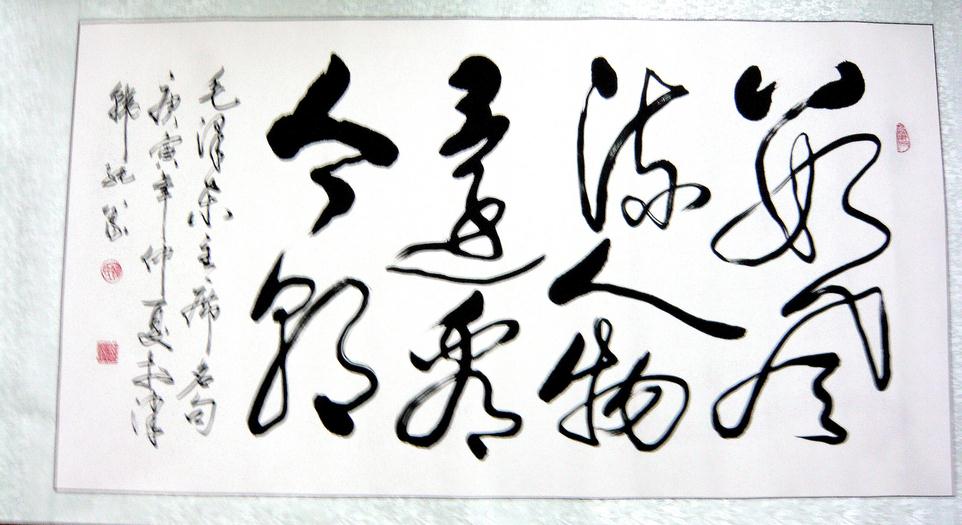 数风
流人物
還看
今朝
毛澤东主席名句
庚寅年仲夏